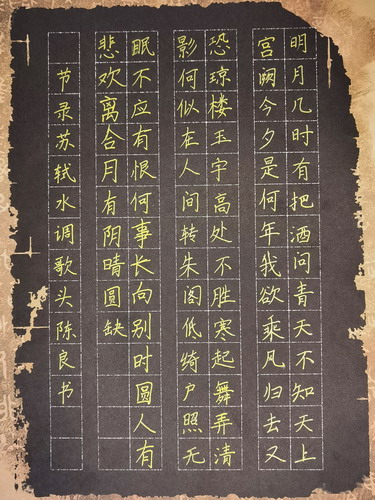 明月几时有把酒问青天不知天上
宫阙今夕是何年我欲乘风归去又
恐琼楼玉宇高处不胜寒起舞弄清
影何似在人间转朱阁低绮户照无
眠不应有恨何事长向别时圆人有
悲欢离合月有阴晴圆缺
节录苏轼水调歌头陈良书